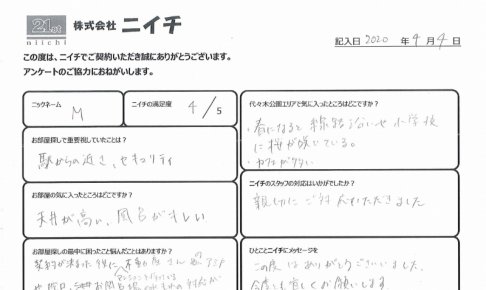 21st
niichi
株式会社 ニイチ
記入日 2020 年 4 月 4 日
この度は、ニイチでご契約いただき誠にありがとうございます。
アンケートのご協力におねがいします。
ニックネーム
M
ニイチの満足度
4 / 5
お部屋探しで重要視していたことは?
駅からの近さ、セキュリティ
お部屋の気に入ったところはどこですか?
天井が高い、風呂がキレい
お部屋探しの最中に困ったこと悩んだことはありますか?
契約が
代々木公園エリアで気に入ったところはどこですか?
・春になると線路沿いや小学校
に桜が咲いている。
・カフェが多い
ニイチのスタッフの対応はいかがでしたか?
親切にご対応いただきました
ひとことニイチにメッセージを
この度はありがとうございました。
今後とも宜しくお願いします